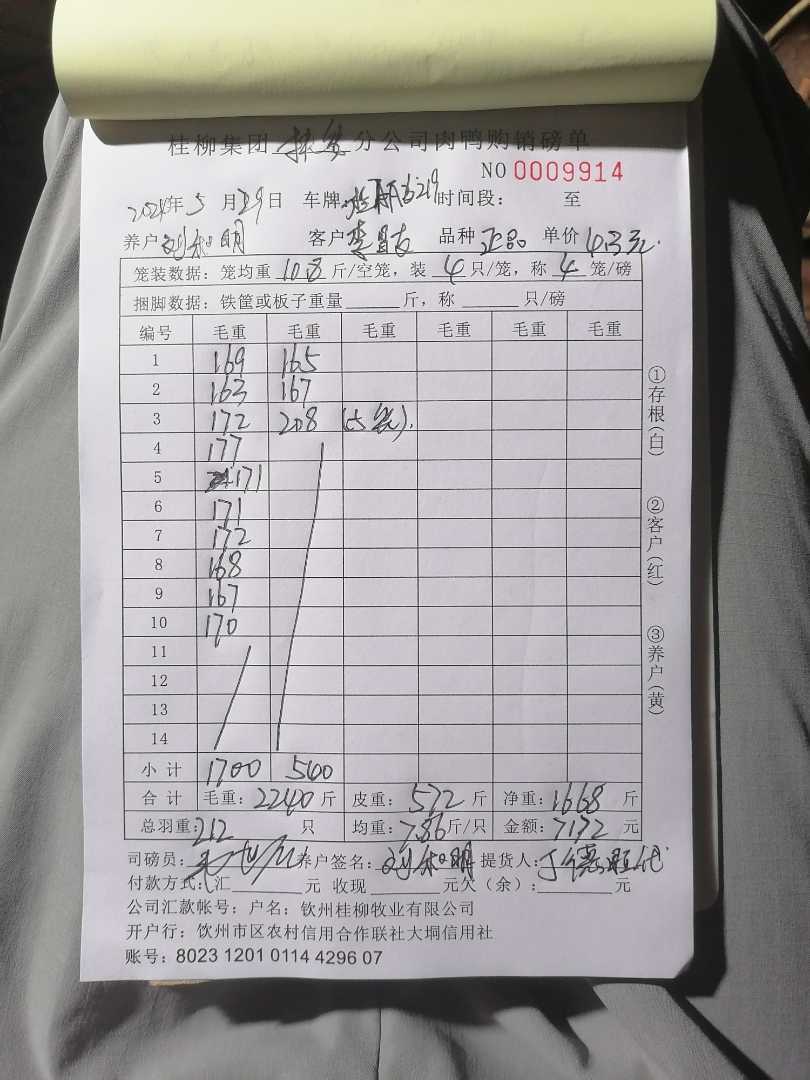 桂柳集团 分公司肉鸭购销磅单
NO 0009914
2024年5月29日 车牌: 6219 时间段: 至
养户 刘和明 客户 李昌友 品种 正品 单价 4.3元.
笼装数据: 笼均重 10.8 斤/空笼, 装 4 只/笼, 称 4 笼/磅
捆脚数据: 铁筐或板子重量 斤, 称 只/磅
编号 毛重 毛重 毛重 毛重 毛重 毛重
1 169 165
2 163 167
3 172 208 (5笼).
4 177
5 171
6 171
7 172
8 168
9 167
10 170
11
12
13
14
小计 1700 540
合计 毛重: 2240 斤 皮重: 572 斤 净重: 1668 斤
总羽重: 212 只 均重: 7.86 斤/只 金额: 7172 元
司磅员: 养户签名: 刘和明 提货人: 丁德 代
付款方式: (汇 元 收现 元欠(余): 元
公司汇款帐号: 户名: 钦州桂柳牧业有限公司
开户行: 钦州市区农村信用合作联社大垌信用社
账号: 8023 1201 0114 4296 07
①存根(白)
②客户(红)
③养户(黄)